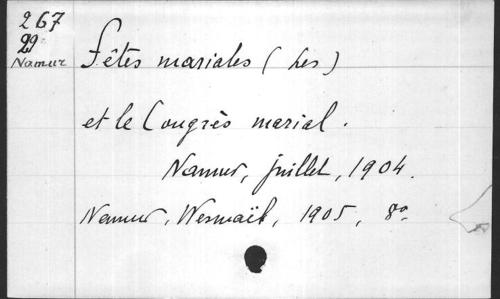 267
29
Namur
Fêtes mariales (Les)
et le Congrès marial.
Namur, juillet, 1904.
Namur, Wesmaël, 1905, 8°